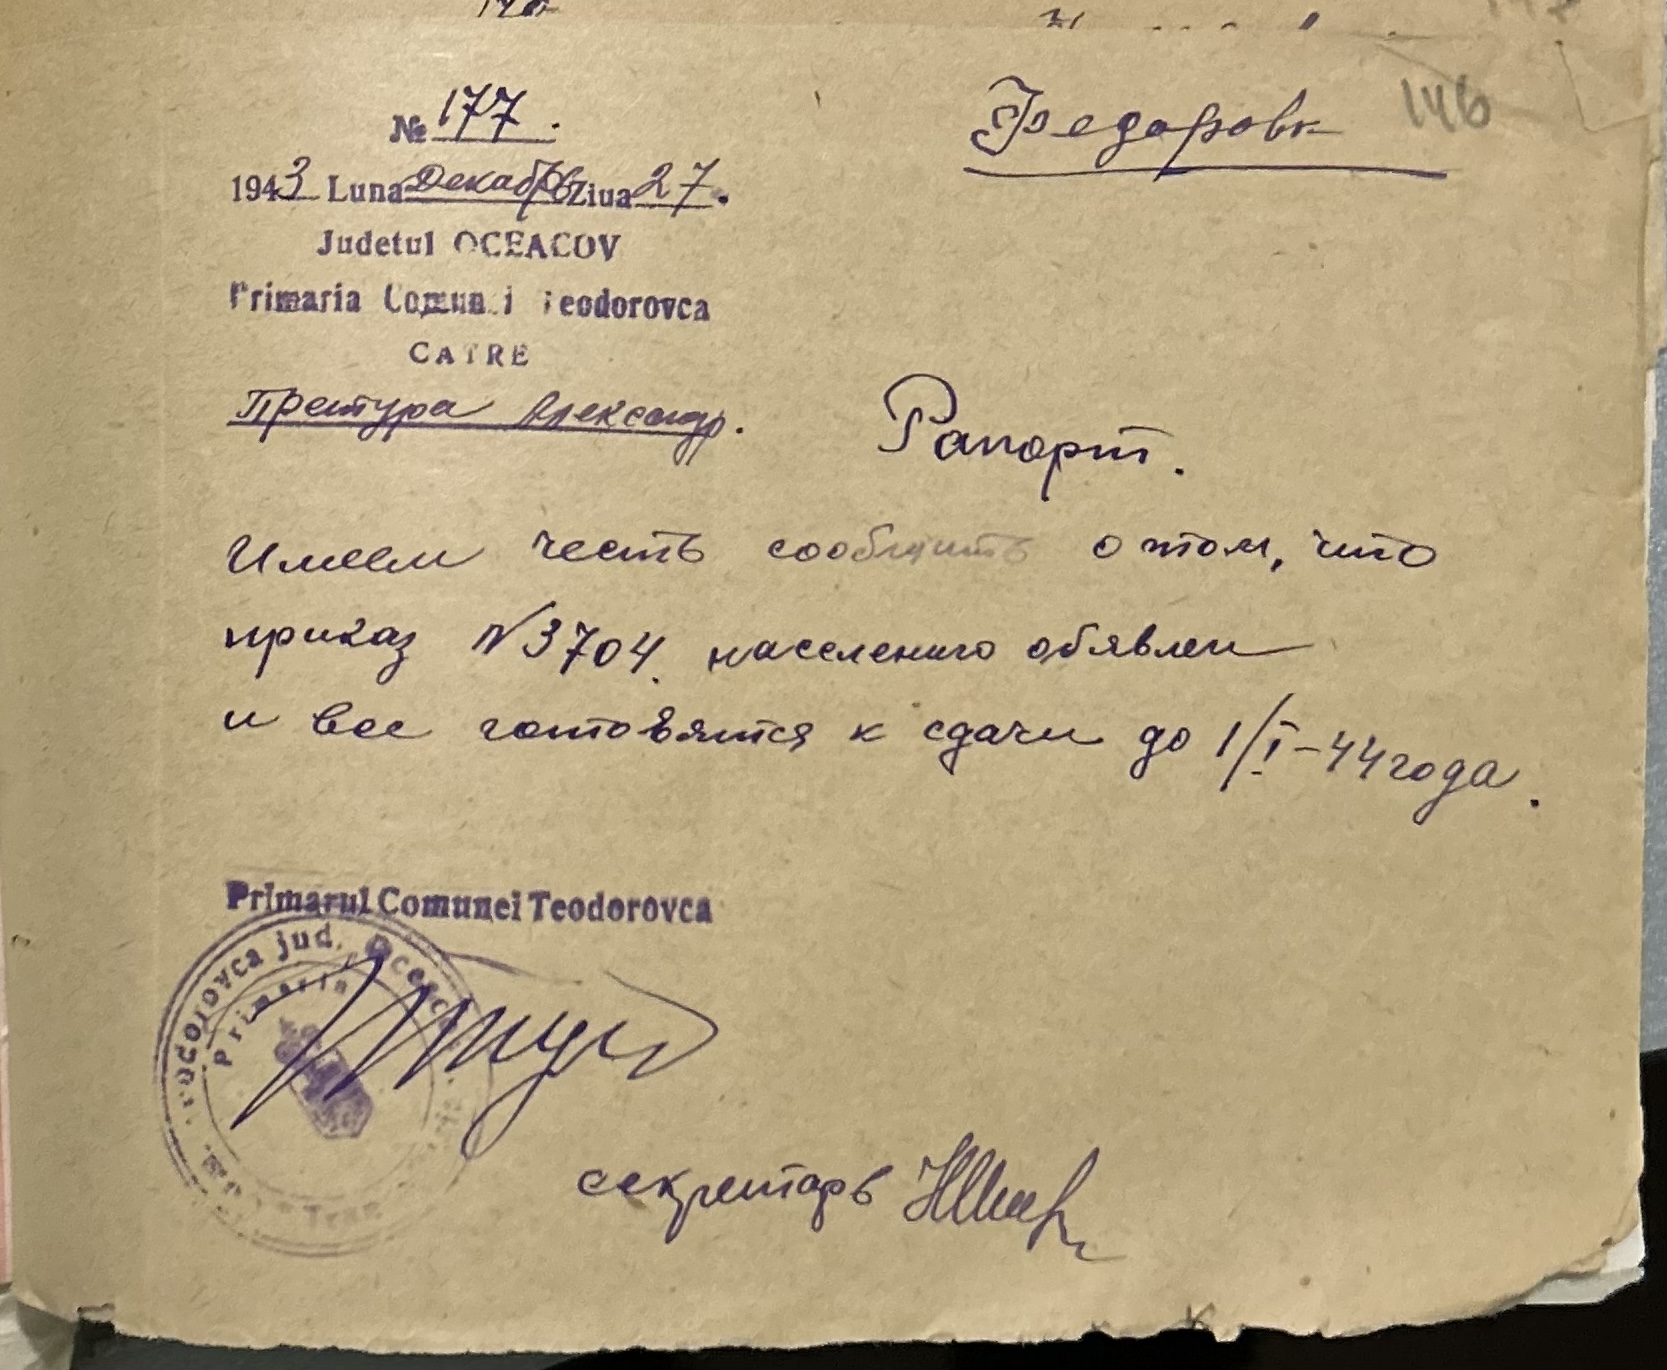 Федоровк
146
№ 177.
1943 Luna Декабрь Ziua 27.
Judetul OCEACOV
Primaria Comunei Teodorovca
CATRE
Претура Александр.
Рапорт.
Имеем честь сообщить о том, что
приказ N 3704. населению обявлен
и все готовятся к сдачи до 1/I-44 года.
Primarul Comunei Teodorovca
Teodorovca jud.
Primaria
секретарь